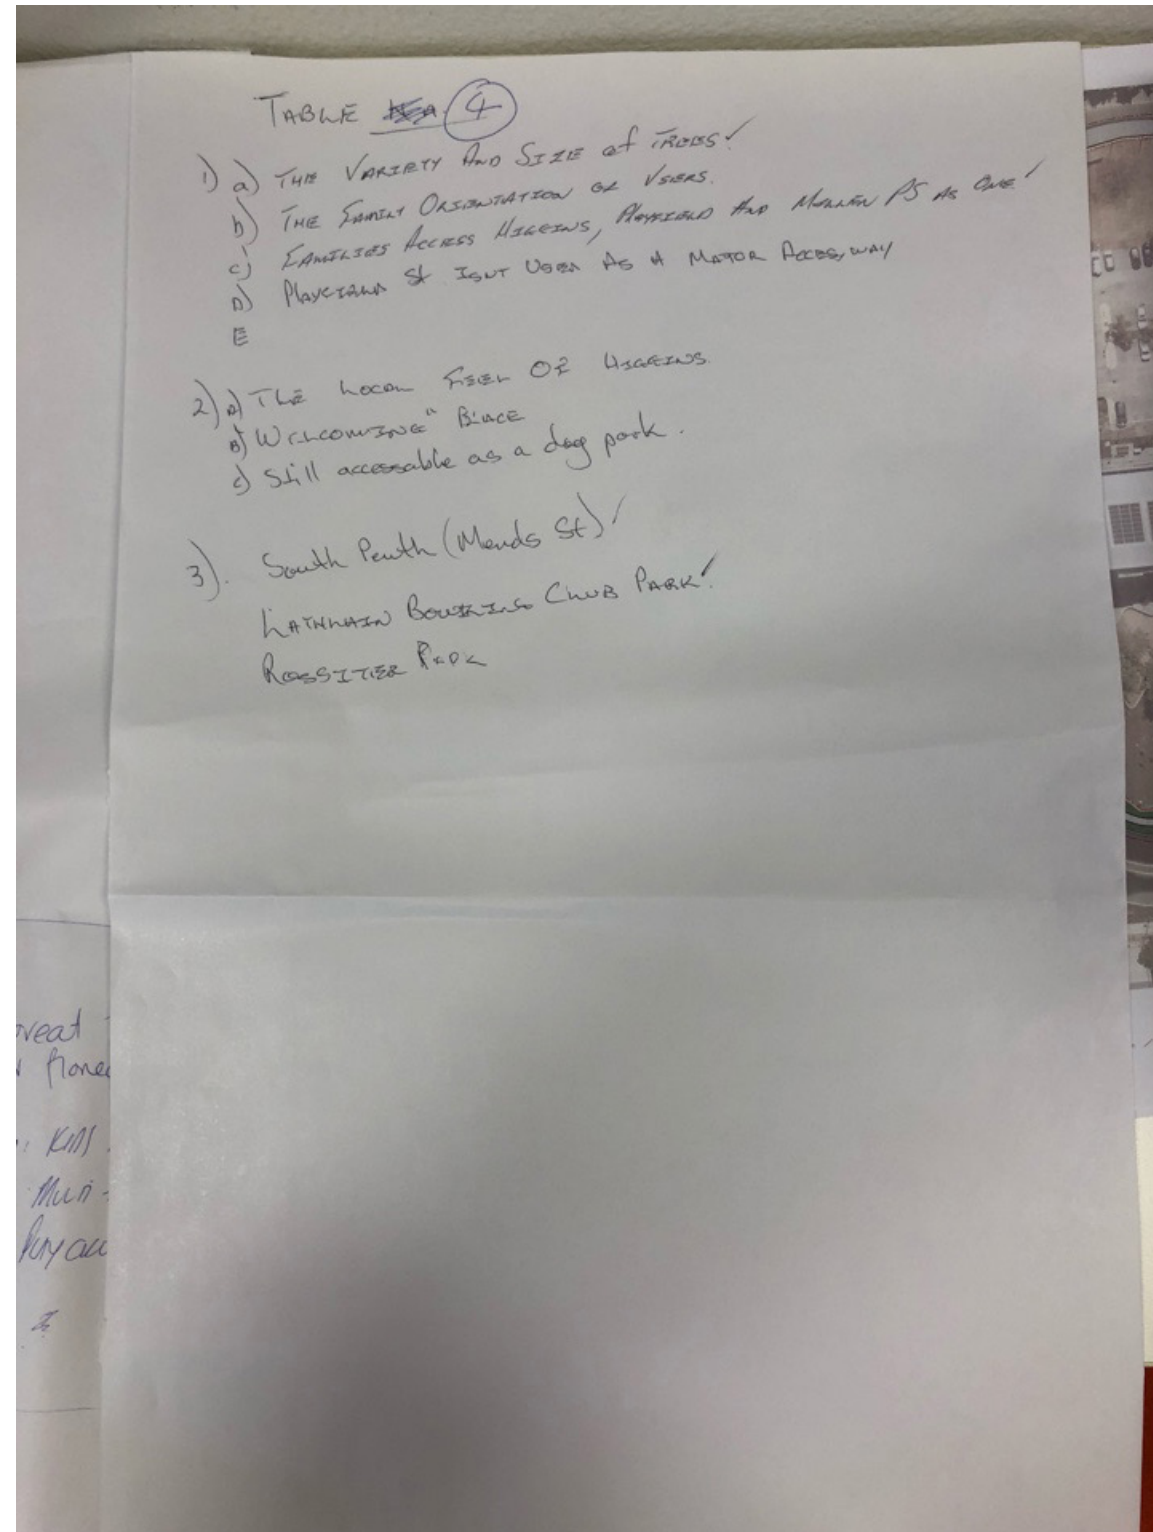 TABLE 4
1) a) THE VARIETY AND SIZE of TREES!
b) THE FAMILY ORIENTATION OF USERS.
c) FAMILIES ACCESS HIGGINS, PLAYFIELD AND MILLEN PS AS ONE!
D) PLAYFIELD St ISNT USED AS A MAJOR ACCESSWAY
E
2) a) THE LOCAL FEEL OF HIGGINS.
B) WELCOMING" PLACE
c) Still accessable as a dog park.
3). South Perth (Mends St)!
LATHLAIN BOWLING CLUB PARK!
ROSSITER PARK
reat
Kids